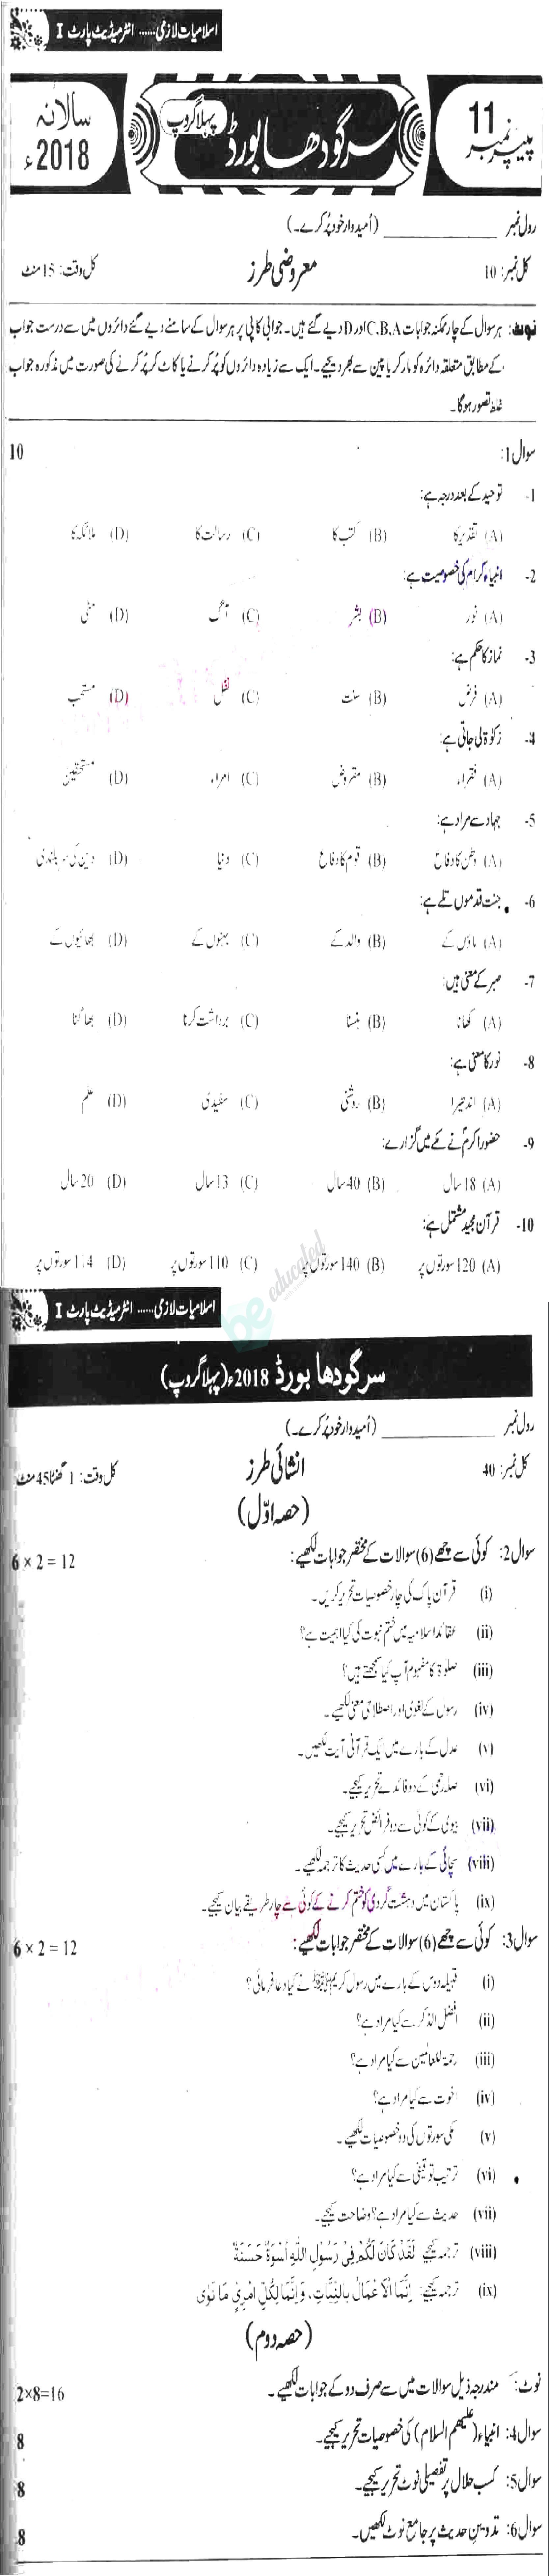 اسلامیات لازمی ...... انٹرمیڈیٹ پارٹ I
پیپر نمبر 11
سرگودھا بورڈ
پہلا گروپ
سالانہ 2018ء
رول نمبر ____________ (اُمیدوار خود پُر کرے۔)
کل نمبر: 10 معروضی طرز کل وقت: 15 منٹ
نوٹ: ہر سوال کے چار ممکنہ جوابات C,B,A اور D دیے گئے ہیں۔ جوابی کاپی پر ہر سوال کے سامنے دیے گئے دائروں میں سے درست جواب
کے مطابق متعلقہ دائرہ کو مارکر یا پین سے بھر دیجیے۔ ایک سے زیادہ دائروں کو پُر کرنے یا کاٹ کر پُر کرنے کی صورت میں مذکورہ جواب
غلط تصور ہوگا۔
سوال 1: 10
1- توحید کے بعد درجہ ہے:
(A) تقدیر کا (B) کتب کا (C) رسالت کا (D) ملائکہ کا
2- انبیاء کرام کی خصوصیت ہے:
(A) نور (B) بشر (C) آگ (D) مٹی
3- نماز کا حکم ہے:
(A) فرض (B) سنت (C) نفل (D) مستحب
4- زکوٰۃ لی جاتی ہے:
(A) فقراء (B) مقروض (C) امراء (D) مستحقین
5- جہاد سے مراد ہے:
(A) وطن کا دفاع (B) قوم کا دفاع (C) دنیا (D) دین کی سربلندی
6- جنت قدموں تلے ہے:
(A) ماؤں کے (B) والد کے (C) بہنوں کے (D) بھائیوں کے
7- صبر کے معنی ہیں:
(A) کھانا (B) ہنسنا (C) برداشت کرنا (D) بھاگنا
8- نور کا معنی ہے:
(A) اندھیرا (B) روشنی (C) سفیدی (D) علم
9- حضور اکرمؐ نے مکے میں گزارے:
(A) 18 سال (B) 40 سال (C) 13 سال (D) 20 سال
10- قرآن مجید مشتمل ہے:
(A) 120 سورتوں پر (B) 140 سورتوں پر (C) 110 سورتوں پر (D) 114 سورتوں پر
be educated
اسلامیات لازمی ...... انٹرمیڈیٹ پارٹ I
سرگودھا بورڈ 2018ء (پہلا گروپ)
رول نمبر ____________ (اُمیدوار خود پُر کرے۔)
کل نمبر: 40 انشائی طرز کل وقت: 1 گھنٹا 45 منٹ
(حصہ اوّل)
سوال 2: کوئی سے چھے (6) سوالات کے مختصر جوابات لکھیے: 6 × 2 = 12
(i) قرآن پاک کی چار خصوصیات تحریر کریں۔
(ii) عقائد اسلامیہ میں ختم نبوت کی کیا اہمیت ہے؟
(iii) صلوٰۃ کا مفہوم آپ کیا سمجھتے ہیں؟
(iv) رسول کے لغوی اور اصطلاحی معنی لکھیے۔
(v) عدل کے بارے میں ایک قرآنی آیت لکھیں۔
(vi) صلہ رحمی کے دو فائدے تحریر کیجیے۔
(vii) بیوی کے کوئی سے دو فرائض تحریر کیجیے۔
(viii) سچائی کے بارے میں کسی حدیث کا ترجمہ لکھیے۔
(ix) پاکستان میں دہشت گردی کو ختم کرنے کے کوئی سے چار طریقے بیان کیجیے۔
سوال 3: کوئی سے چھے (6) سوالات کے مختصر جوابات لکھیے: 6 × 2 = 12
(i) قبیلہ دوس کے بارے میں رسول کریم ﷺ نے کیا دعا فرمائی؟
(ii) افضل الذکر سے کیا مراد ہے؟
(iii) رحمۃ للعالمین سے کیا مراد ہے؟
(iv) اخوت سے کیا مراد ہے؟
(v) مکی سورتوں کی دو خصوصیات لکھیے۔
(vi) ترتیب توقیفی سے کیا مراد ہے؟
(vii) حدیث سے کیا مراد ہے؟ وضاحت کیجیے۔
(viii) ترجمہ کیجیے لَقَدْ كَانَ لَكُمْ فِىْ رَسُوْلِ اللّٰهِ اُسْوَةٌ حَسَنَةٌ
(ix) ترجمہ کیجیے: اِنَّمَا الْاَعْمَالُ بِالنِّيَّاتِ، وَاِنَّمَا لِكُلِّ امْرِئٍ مَا نَوٰى
(حصہ دوم)
نوٹ: مندرجہ ذیل سوالات میں سے صرف دو کے جوابات لکھیے۔ 2×8=16
سوال 4: انبیاء (علیھم السلام) کی خصوصیات تحریر کیجیے۔ 8
سوال 5: کسب حلال پر تفصیلی نوٹ تحریر کیجیے۔ 8
سوال 6: تدوین حدیث پر جامع نوٹ لکھیں۔ 8